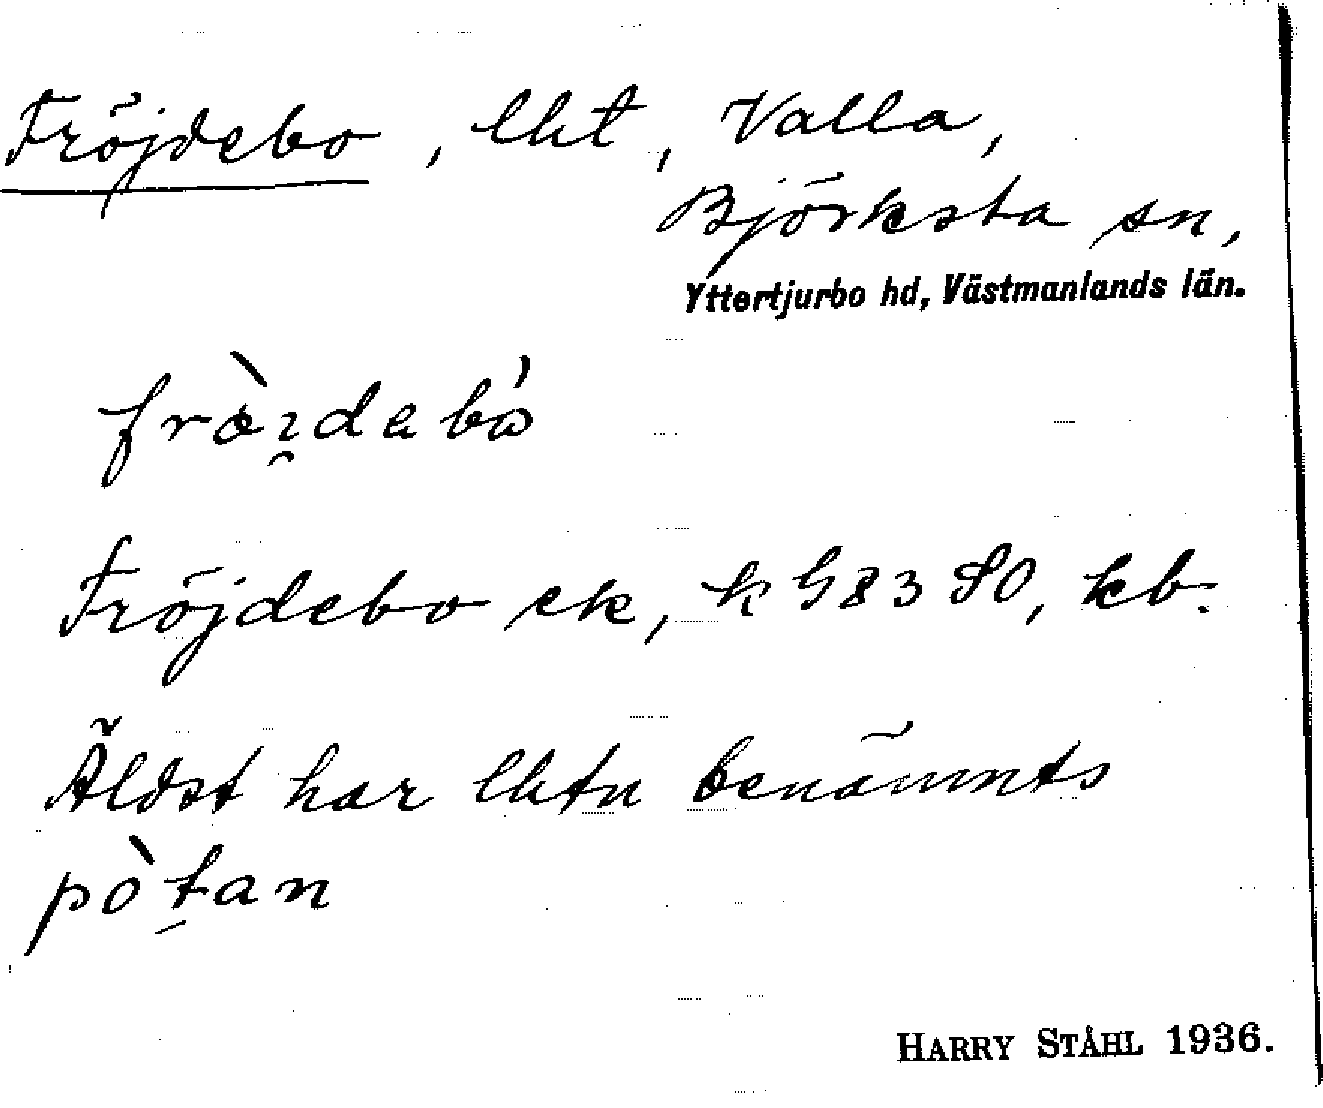 Fröjdebo, lht, Valla,
Björksta sn,
Yttertjurbo hd, Västmanlands län.
Fröjdebo ek, k G83 SO, kb.
Äldst har lhtn benämnts
pòtan
HARRY STÅHL 1936.